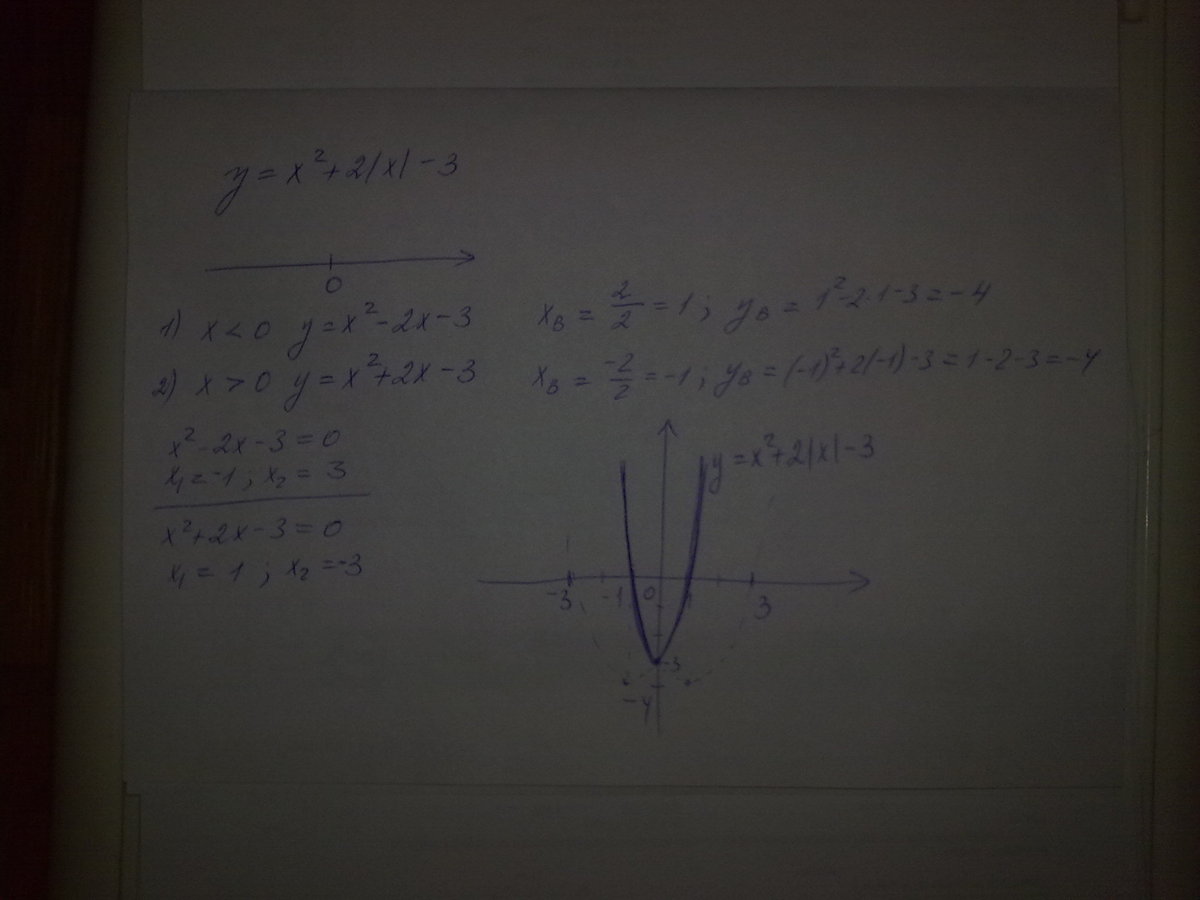 y = x² + 2|x| - 3
0
1) x < 0 y = x² - 2x - 3 xв = 2/2 = 1; yв = 1² - 2·1 - 3 = -4
2) x > 0 y = x² + 2x - 3 xв = -2/2 = -1; yв = (-1)² + 2(-1) - 3 = 1 - 2 - 3 = -4
x² - 2x - 3 = 0
x₁ = -1; x₂ = 3
x² + 2x - 3 = 0
x₁ = 1; x₂ = -3
y = x² + 2|x| - 3
-3 -1 0 1 3
-3
-4